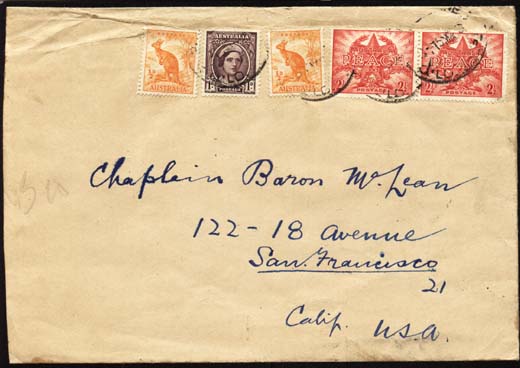 ½D
AUSTRALIA
AUSTRALIA
1D POSTAGE
½D
AUSTRALIA
PEACE
2½ POSTAGE
PEACE
2½ POSTAGE
Chaplain Baron McLean
122-18 Avenue
San Francisco
21
Calif. U.S.A.